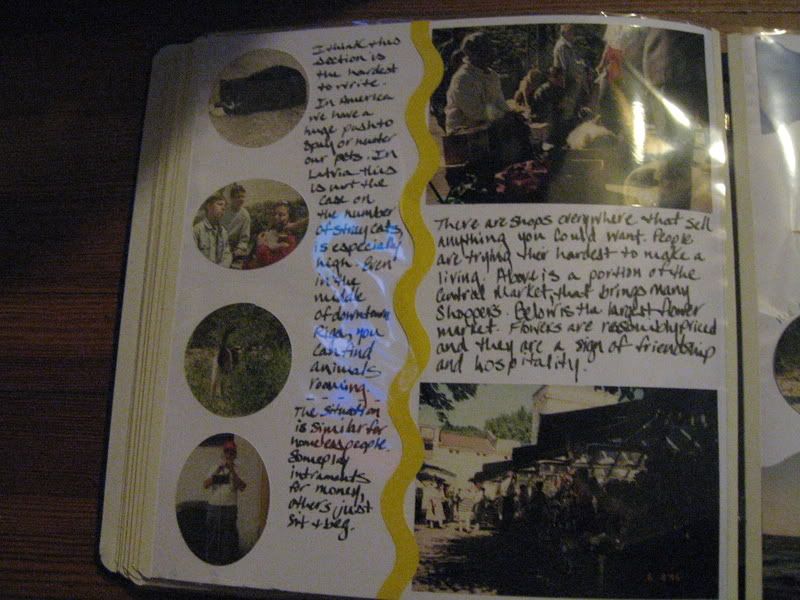 I think this
section is
the hardest
to write.
In America
we have a
huge push to
spay or nuder
our pets. In
Latvia this
is not the
case on
the number
of stray cats
is especially
high. Even
in the
middle
of downtown
Riga, you
can find
animals
roaming.
The situation
is similar for
homeless people.
Some play
intraments
for money,
others just
sit + beg.
There are shops everywhere that sell
anything you could want. People
are trying their hardest to make a
living. Above is a portion of the
Central Market, that brings many
shoppers. Below is the largest flower
market. Flowers are reasonably priced
and they are a sign of friendship
and hospitality.